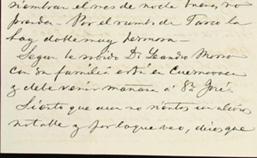 siembran el mes de noche buena no
prenda. Por el rumbo de Taxco la
hay doble muy hermosa.
Segun he sabido D. Leandro Mo
con su familia está en Cuernavaca
y debe venir mañana á Sn José.
Siento que aun no sientas un alivio
notable y por lo que veo, dices que